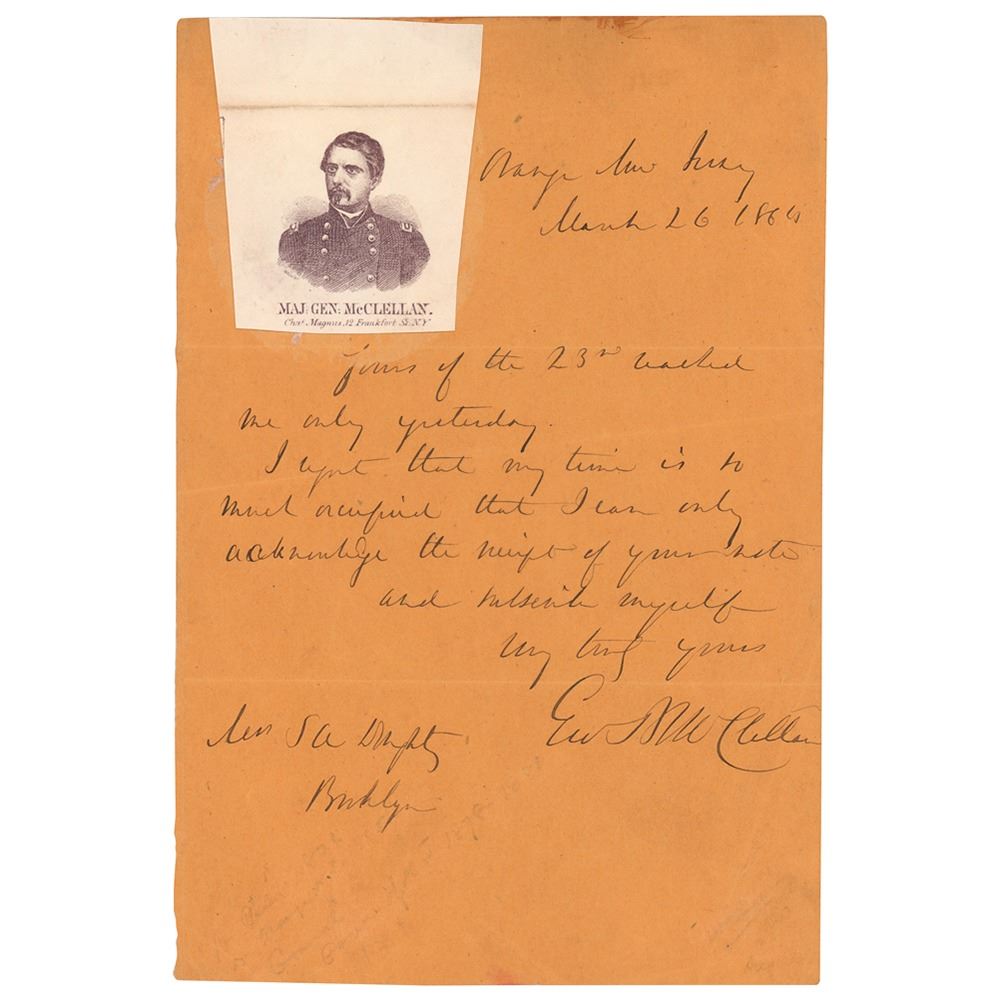 Orange New Jersey
March 26 1864
MAJ: GEN: McCLELLAN.
Chas. Magnus, 12 Frankfort St. N.Y
Yours of the 23rd reached
me only yesterday.
I regret that my time is so
much occupied that I can only
acknowledge the receipt of your note
and subscribe myself
Very truly yours
Geo B McClellan
S A Doughty
Brooklyn